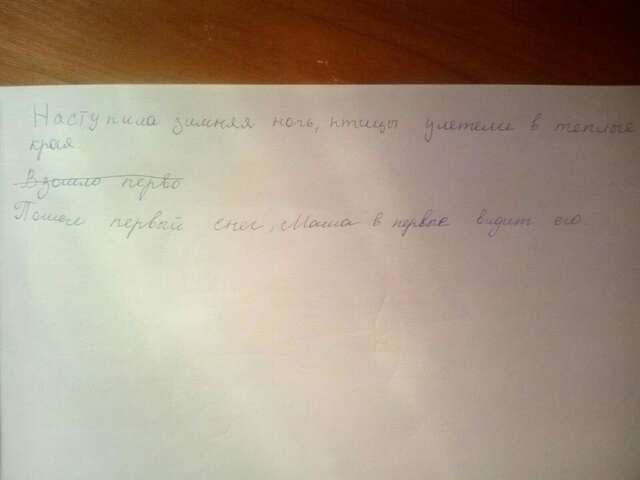 Наступила зимняя ночь, птицы улетели в теплые
края
Взошло перво
Пошел первый снег, Маша в первые видит его.